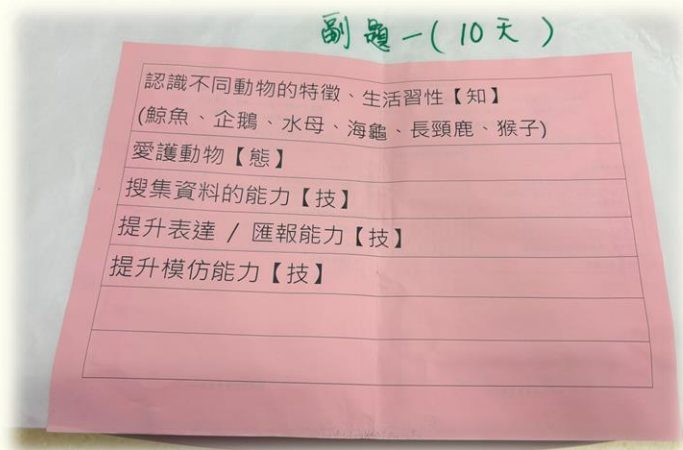 副題一(10天)
認識不同動物的特徵、生活習性【知】
(鯨魚、企鵝、水母、海龜、長頸鹿、猴子)
愛護動物【態】
搜集資料的能力【技】
提升表達 / 匯報能力【技】
提升模仿能力【技】